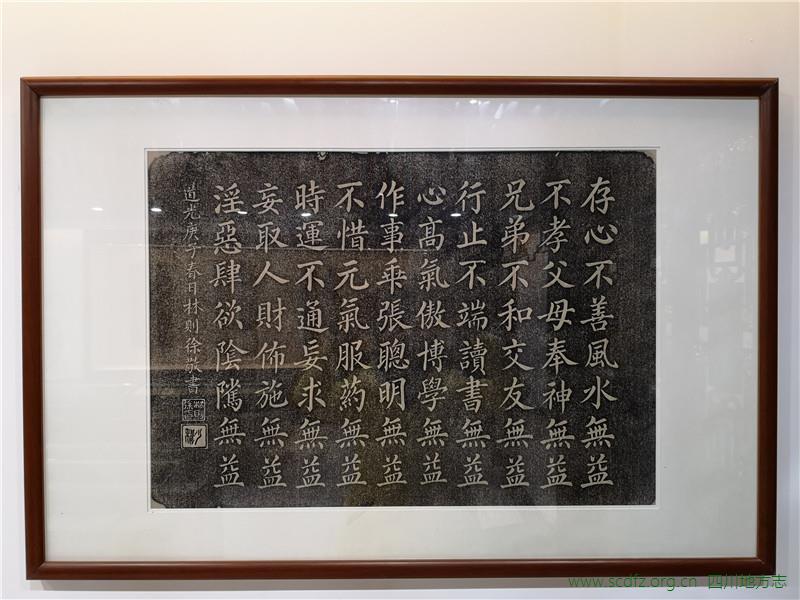 存心不善風水無益
不孝父母奉神無益
兄弟不和交友無益
行止不端讀書無益
心髙氣傲博學無益
作事乖張聰明無益
不惜元氣服药無益
時運不通妄求無益
妄取人財佈施無益
淫惡肆欲陰騭無益
道光庚子春日林則徐敬書
www.scdfz.org.cn 四川地方志